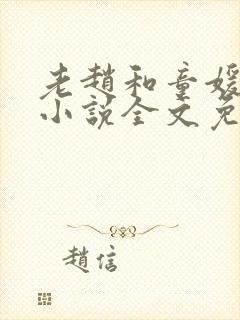 老趙和童媛
小說全文免
趙信